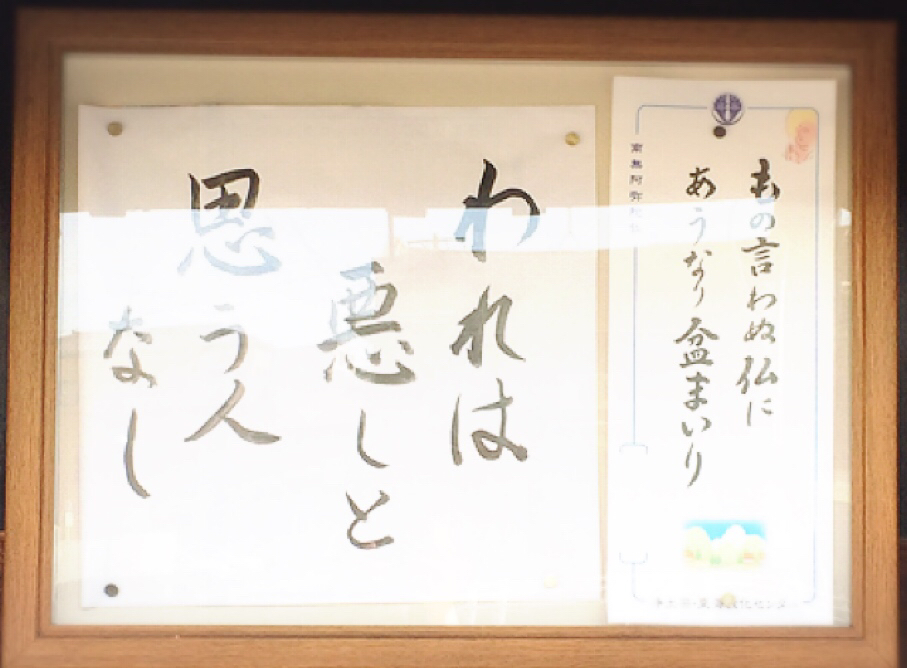 もの言わぬ仏に
あうなり盆まいり
南無阿弥陀仏
われは
悪しと
思う人
なし